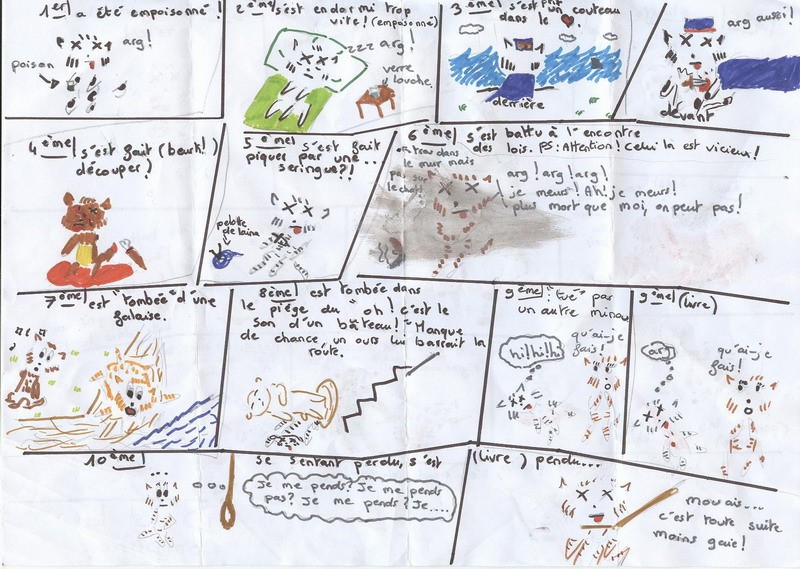 1er/ a été empoisonné !
arg !
poison
2ème/ s'est endormi trop
vite ! (empoisonné)
zzz arg !
verre
louche.
3ème/ s'est prit un couteau
dans le ♥.
derrière
arg aussi !
dévant
4ème/ s'est fait (beurk !)
découper !
5ème/ s'est fait
piquer par une...
seringue?!
pelote
de laine
6ème/ s'est battu à l'encontre
des lois. PS : Attention ! Celui la est vicieux !
un trou dans
le mur mais
pas sur
le chat !
arg ! arg ! arg !
je meurs ! Ah ! je meurs !
plus mort que moi, on peut pas !
7ème/ est "tombée" d'une
falaise.
8ème/ est tombée dans
le piège du "oh ! c'est le
son d'un bâteau ! Manque
de chance, un ours lui barrait la
route.
9ème/ "tué" par
un autre minou
hi ! hi ! hi
qu'ai-je
fais !
9ème/ (livre)
arg
qu'ai-je
fais !
10ème/
se sentant perdu, s'est
Je me pends ? Je me pends
pas ? Je me pends ? Je....
(livre) pendu...
mouais...
c'est toute suite
moins gaie !